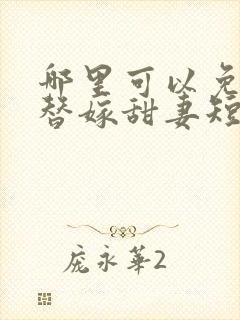 哪里可以免
替嫁甜妻短
庞永华2